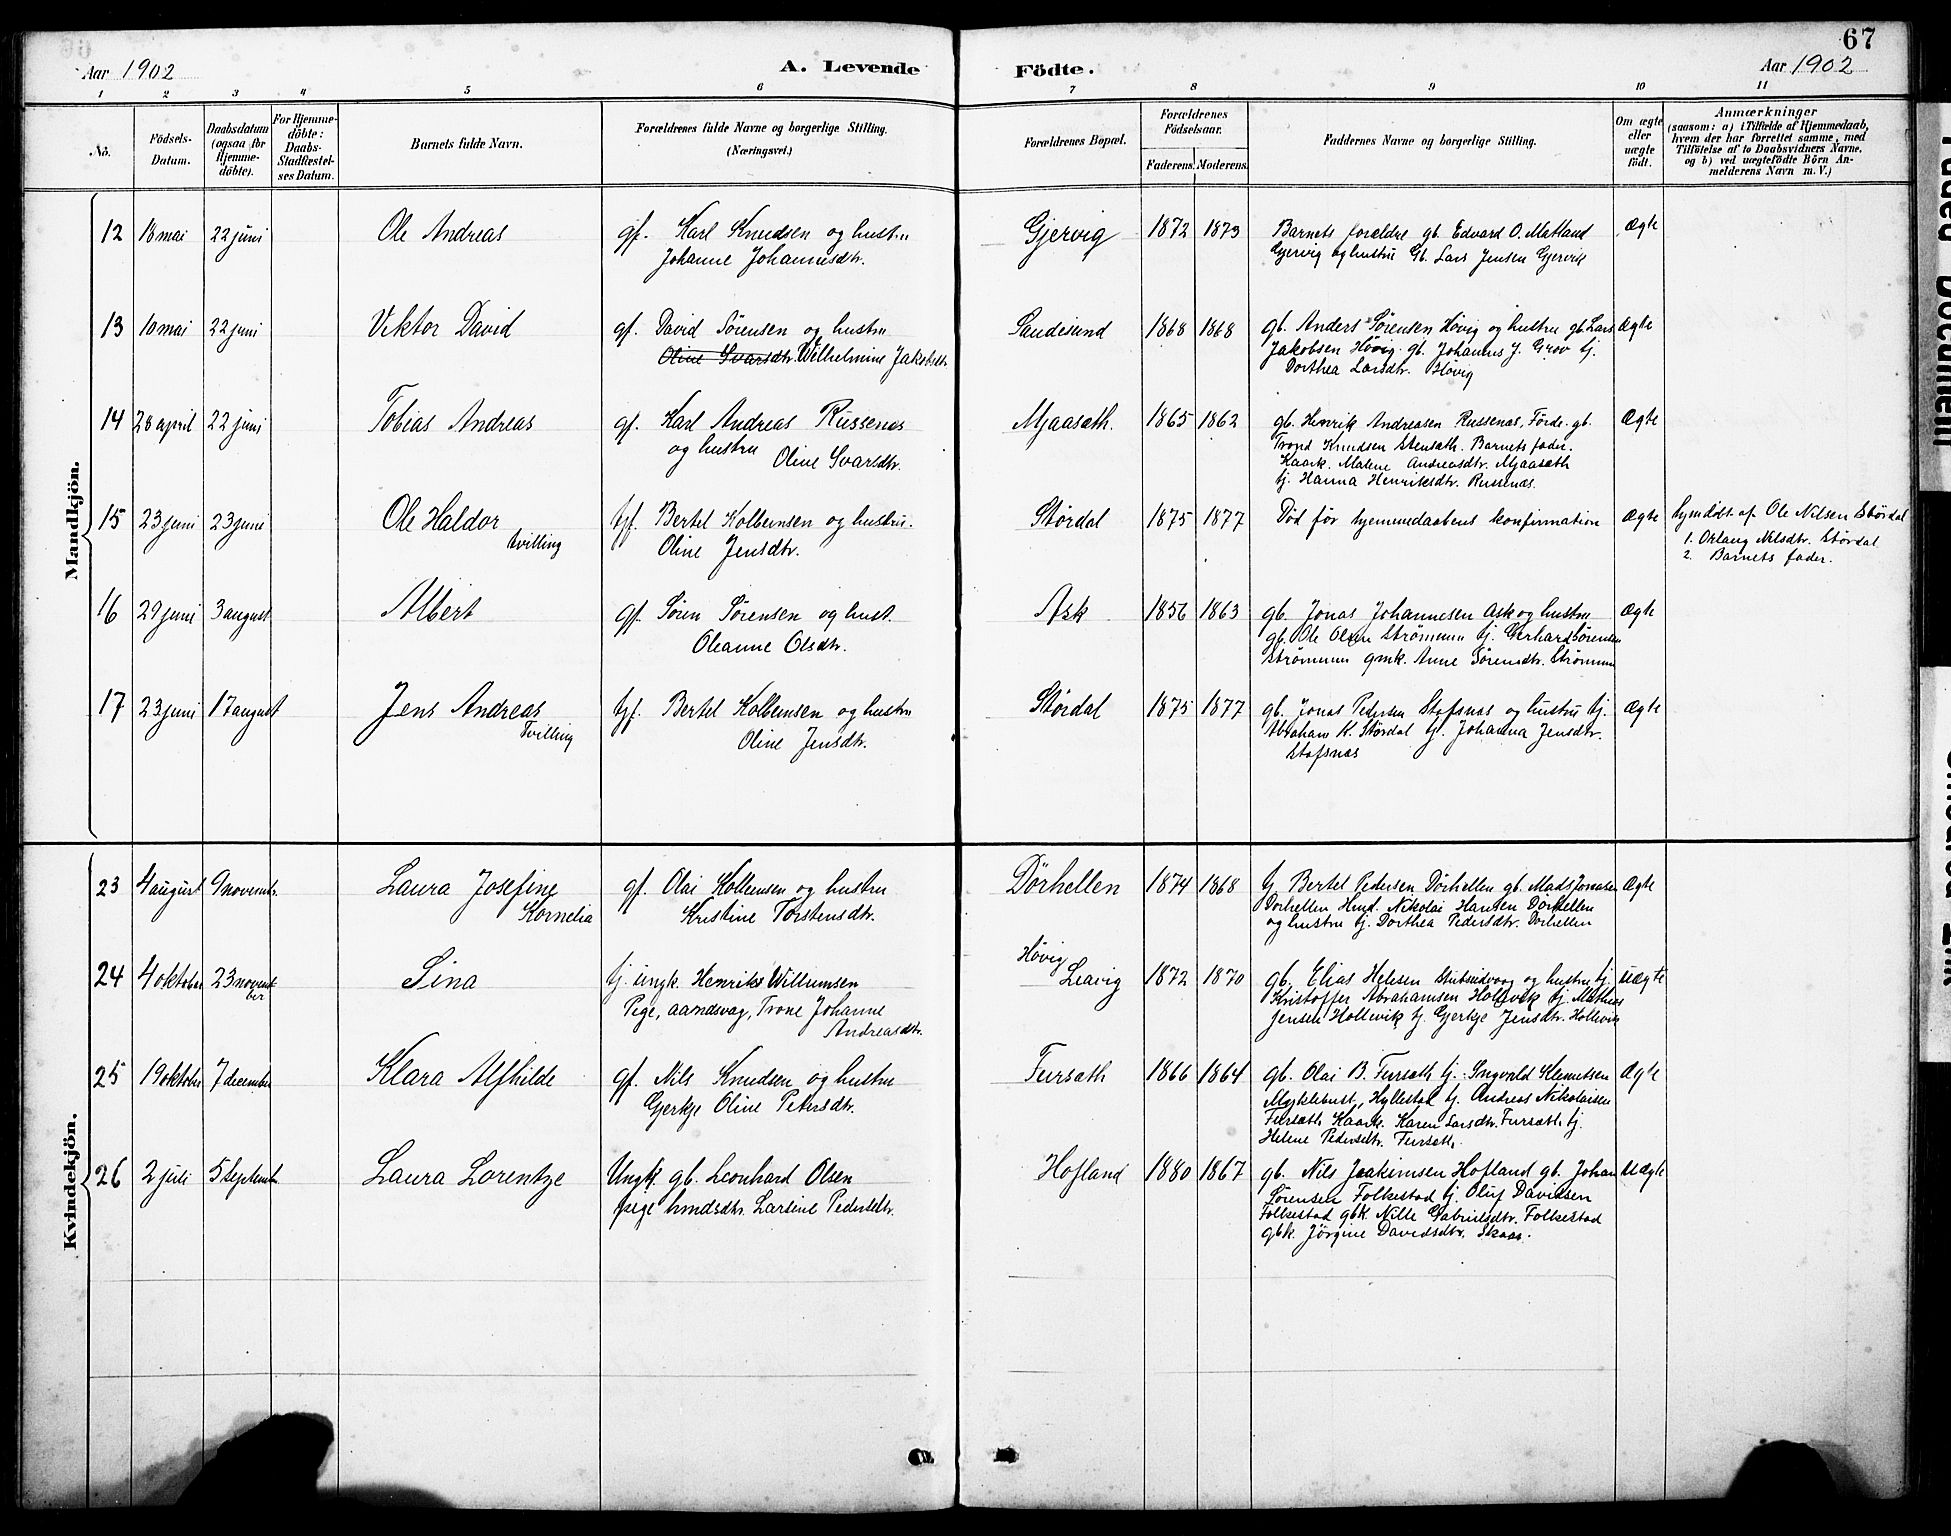 67
Aar 1902 A. Levende Födte. Aar 1902
1 2 3 4 5 6 7 8 9 10 11
No.
Födsels-Datum.
Daabsdatum (ogsaa for Hjemme-döbte).
For Hjemme-döbte: Daabs-Stadfæstel-ses Datum.
Barnets fulde Navn.
Forældrenes fulde Navne og borgerlige Stilling. (Næringsvei.)
Forældrenes Bopæl.
Forældrenes Födselsaar.
Faderens. Moderens.
Faddernes Navne og borgerlige Stilling.
Om ægte eller uægte födt.
Anmærkninger
(saasom: a) i Tilfælde af Hjemmedaab,
hvem der har forrettet samme, med
Tilföielse af to Daabsvidners Navne,
og b) ved uægtefödte Börn An-
melderens Navn m. V.)
Mandkjön.
12 18 mai 22 juni Ole Andreas gf. Karl Knudsen og hustru Gjervig 1872 1873 Barnets forældre gb. Edvard O. Matland Ægte
Johanne Johannesdtr. Gjervig og hustru Gb. Lars Jensen Gjervik
13 10 mai 22 juni Viktor David gf. David Sørensen og hustru Sandesund 1868 1868 gb. Anders Sørensen Høvig og hustru gb Lars Ægte
Oline Ivarsdtr. Wilhelmine Jakobsdtr. Jakobsen Høvig. gb. Johannes J. Grov tj.
Dorthea Larsdtr. Høvig
14 28 april 22 juni Tobias Andreas gf. Karl Andreas Russenes Mjaasæth. 1865 1862 gb. Henrik Andreasen Russenas, Förde. gb. Ægte
og hustru Oline Ivarsdtr. Trond Knudsen Stensæth. Barnets fader.
Kaark. Malene Andreasdtr. Mjaasæth
tj. Hanna Henriksdtr. Russenæs.
15 23 juni 23 juni Ole Haldor tvilling tjf. Bertel Kolbeinsen og hustru. Størdal 1875 1877 Död før hjemmedaabens konfirmation Ægte hjemdöbt af Ole Nilsen Størdal
Oline Jensdtr. 1. Orlaug Nilsdtr. Størdal
2. Barnets fader.
16 29 juni 3 august Albert gf. Søren Sørensen og hust. Ask 1856 1863 gb. Jonas Johannesen Ask og hustru Ægte
Oleanne Olsdtr. gb. Ole Olsen Strømmen tj. Gerhard Sörensen
Strømmen gmk. Anne Sørensdtr. Strømmen
17 23 juni 17 august Jens Andreas Tvilling tjf. Bertel Kolbeinsen og hustru Størdal 1875 1877 gb. Jonas Pedersen Stafsnas og hustru tj. Ægte
Oline Jensdtr. Abraham K. Størdal tj. Johanna Jensdtr.
Stafsnæs
Kvindekjön.
23 4 august 9 novembr. Laura Josefine Kornelia gf. Olai Kolbensen og hustru Dörhellen 1874 1868 tj Bertel Pedersen Dörhellen gb. Mads Jonasen Ægte
Kristine Torstensdtr. Dorhellen Hmd. Nikolai Hansen Dörhellen
og hustru tj. Dorthea Pedersdtr. Dorhellen
24 4 oktober 23 november Sina tj. ungk. Henrik Willumsen Høvig Leavig 1872 1870 gb. Elias Helesen og hustru tj. uægte
Pige, aandsvag, Trone Johanne Kristoffer Abrahamsen Hollevik tj. Mathias
Andreasdtr. Jensen Hollevik tj. Gjertje Jensdtr. Hollevik
25 19 oktober 7 december Klara Alfhilde gf. Nils Knudsen og hustru Fursæth 1866 1864 gb. Olai B. Fursæth tj. Ingvald Klemetsen Ægte
Gjertje Oline Petersdtr. Myklebust, Hyllestad tj. Andreas Nikolaisen
Fursæth Kaark. Karen Larsdtr. Fursæth tj.
Helene Pedersdtr. Fursæth.
26 2 juli 5 Septembr Laura Lorentze Ungk. gb. Leonhard Olsen Hofland 1880 1867 gb. Nils Joakimsen Hofland gb. Johan uægte
pige hmdsdtr. Larsine Pedersdtr. Sørensen Folkestad tj. Oluf Davidsen
Folkestad gbk. Nille Gabrielsdtr. Folkestad
gbk. Jörgine Davidsdtr. Skaar.